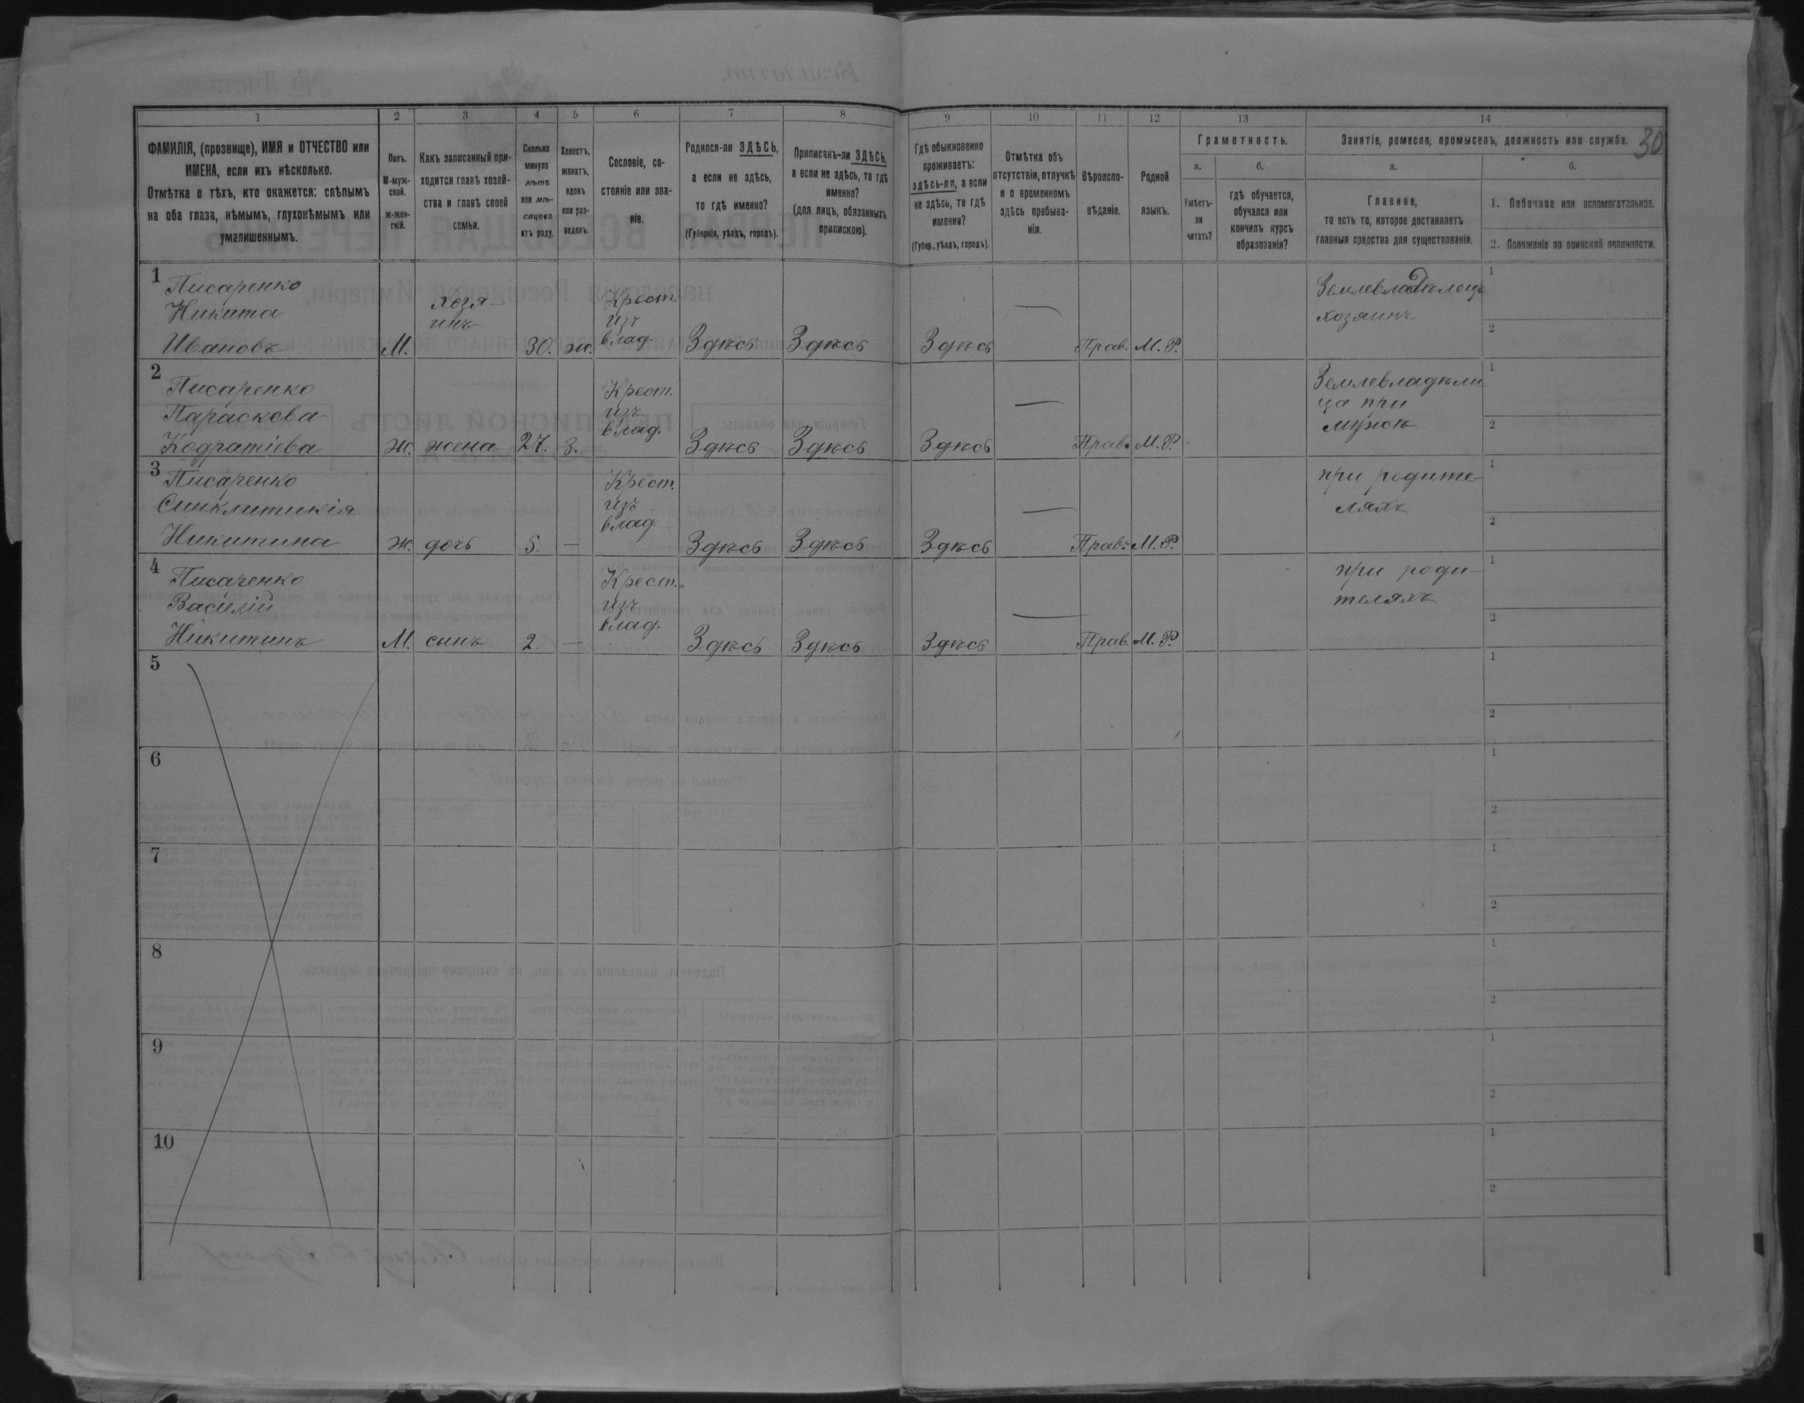 30
1 2 3 4 5 6 7 8 9 10 11 12 13 14
ФАМИЛІЯ, (прозвище), ИМЯ и ОТЧЕСТВО или
ИМЕНА, если ихъ нѣсколько.
Отмѣтка о тѣхъ, кто окажется: слѣпымъ
на оба глаза, нѣмымъ, глухонѣмымъ или
умалишеннымъ.
Полъ.
М-муж-
ской.
ж-жен-
скій.
Какъ записанный при-
ходится главѣ хозяй-
ства и главѣ своей
семьи.
Сколько
минуло
лѣтъ
или мѣ-
сяцевъ
отъ роду.
Холостъ,
женатъ,
вдовъ
или раз-
веденъ.
Сословіе, со-
стояніе или зва-
ніе.
Родился-ли ЗДѢСЬ,
а если не здѣсь,
то гдѣ именно?
(Губернія, уѣздъ, городъ).
Приписанъ-ли ЗДѢСЬ,
а если не здѣсь, то гдѣ
именно?
(для лицъ, обязанныхъ
припискою).
Гдѣ обыкновенно
проживаетъ:
здѣсь-ли, а если
не здѣсь, то гдѣ
именно?
(Губер., уѣздъ, городъ).
Отмѣтка объ
отсутствіи, отлучкѣ
и о временномъ
здѣсь пребыва-
ніи.
Вѣроиспо-
вѣданіе.
Родной
языкъ.
Грамотность.
а.
Умѣетъ-
ли
читать?
б.
гдѣ обучается,
обучался или
кончилъ курсъ
образованія?
Занятіе, ремесло, промыселъ, должность или служба.
а.
Главное,
то есть то, которое доставляетъ
главныя средства для существованія.
б.
1. Побочное или вспомогательное.
2. Положеніе по воинской повинности.
1
Писаренко
Никита
Ивановъ
М.
хозя-
инъ
30.
ж.
Крест.
изъ
влад.
Здѣсь
Здѣсь
Здѣсь
—
Прав.
М.Р.
Землевладѣлецъ
хозяинъ
1
2
2
Писаренко
Параскева
Кодратіева
ж.
жена
27.
З.
Крест.
изъ
влад.
Здѣсь
Здѣсь
Здѣсь
—
Прав.
М.Р.
Землевладѣли
ца при
мужѣ
1
2
3
Писаренко
Синклитикія
Никитина
ж.
дочь
5.
—
Крест.
изъ
влад.
Здѣсь
Здѣсь
Здѣсь
—
Прав.
М.Р.
при родите-
ляхъ
1
2
4
Писаренко
Василій
Никитинъ
М.
сынъ
2.
—
Крест.
изъ
влад.
Здѣсь
Здѣсь
Здѣсь
—
Прав.
М.Р.
при роди-
теляхъ
1
2
5
1
2
6
1
2
7
1
2
8
1
2
9
1
2
10
1
2